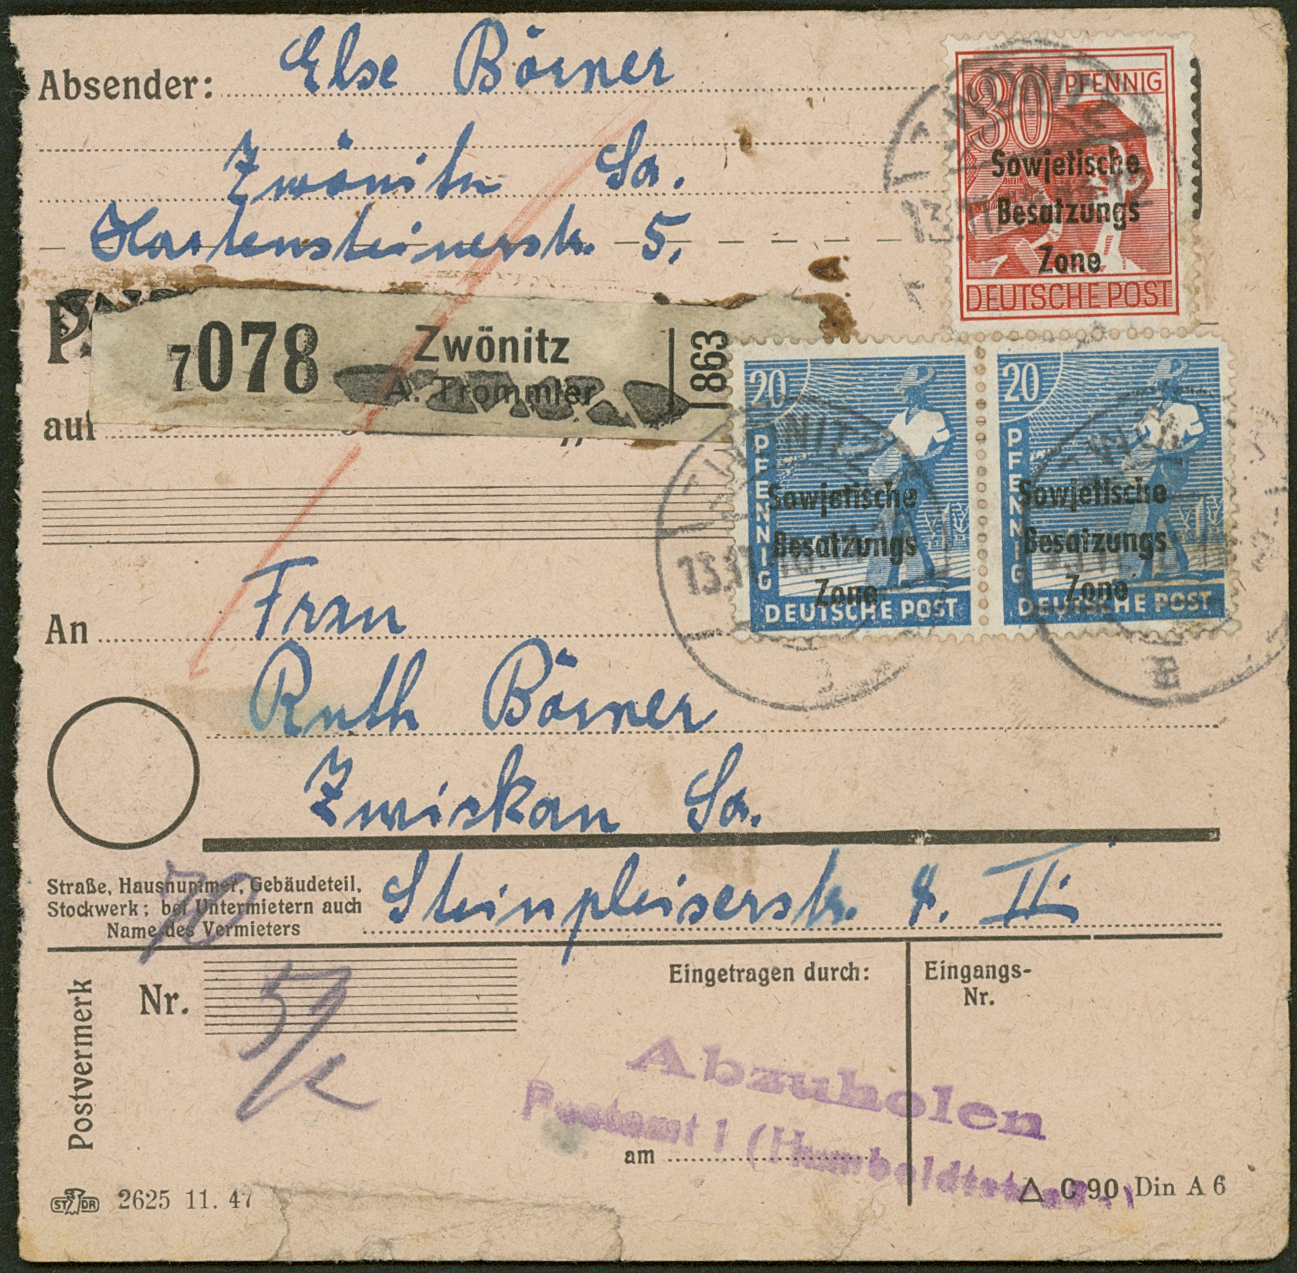 Absender: Else Börner
Zwönitz Sa.
Hartensteinerstr. 5.
30 PFENNIG
Sowjetische
Besatzungs
Zone
DEUTSCHE POST
7078 Zwönitz 863
A. Trommler
auf
20 PFENNIG
Sowjetische
Besatzungs
Zone
DEUTSCHE POST
20 PFENNIG
Sowjetische
Besatzungs
Zone
DEUTSCHE POST
ZWÖNITZ
An Frau
Ruth Börner
Zwickau Sa.
Straße, Hausnummer, Gebäudeteil,
Stockwerk; bei Untermietern auch
Name des Vermieters
Steinpleiserstr. 4. II.
70
Postvermerk
Nr. 5/
Eingetragen durch:
Eingangs-
Nr.
Abzuholen
Postamt 1 (Humboldtstraße)
am
STDR 2625 11. 47
△ C 90 Din A 6